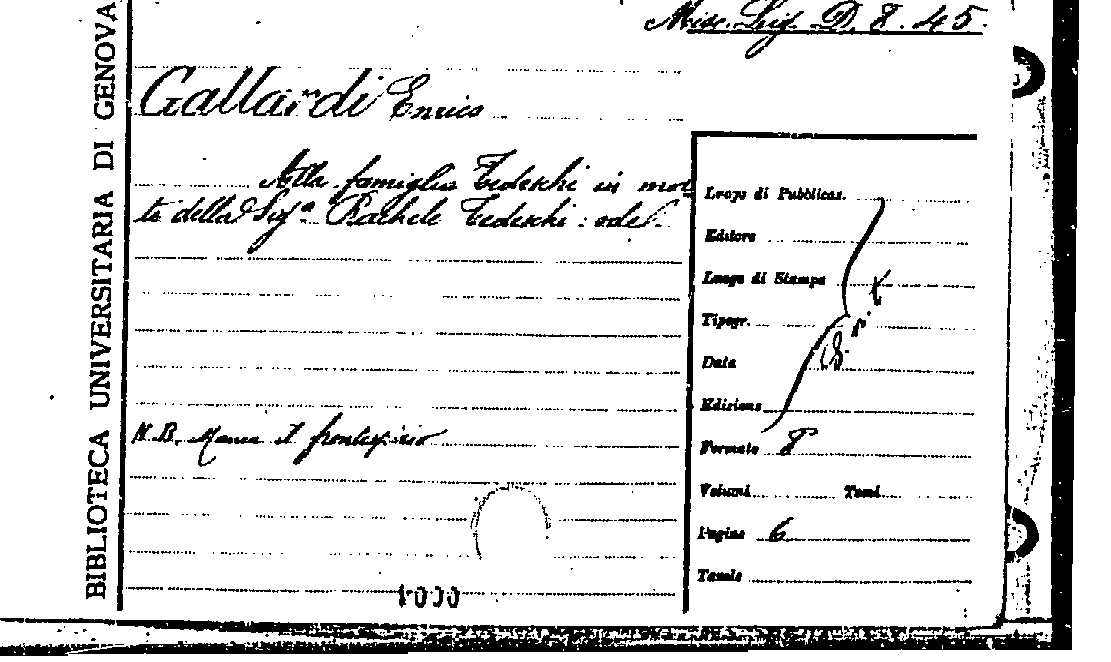 Misc. Lig. D. 8. 45.
BIBLIOTECA UNIVERSITARIA DI GENOVA
Gallardi Enrico
Alla famiglia Tedeschi in mor
te della Sigª Rachele Tedeschi: ode.
N.B. Manca il frontespizio
1000
Luogo di Pubblicaz.
Editore
Luogo di Stampa
Tipogr.
Data
Edizione
Formato 8º
Volumi Tomi
Pagine 6
Tavole